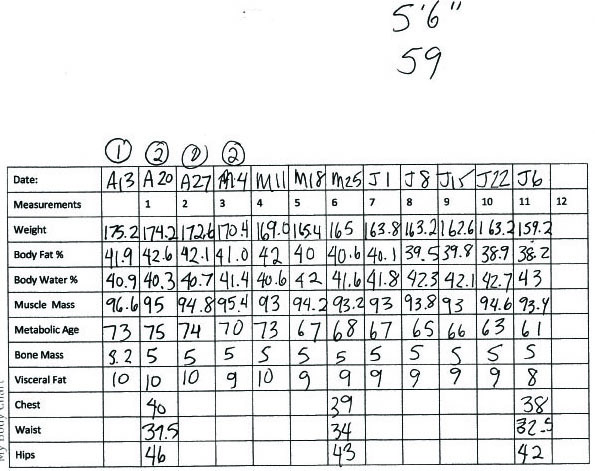 5'6"
59
① ② ② ②
Date: A13 A20 A27 M4 M11 M18 M25 J1 J8 J15 J22 J6
Measurements 1 2 3 4 5 6 7 8 9 10 11 12
Weight 175.2 174.2 172.6 170.4 169.0 165.4 165 163.8 163.2 162.6 163.2 159.2
Body Fat % 41.9 42.6 42.1 41.0 42 40 40.6 40.1 39.5 39.8 38.9 38.2
Body Water % 40.9 40.3 40.7 41.4 40.6 42 41.6 41.8 42.3 42.1 42.7 43
Muscle Mass 96.6 95 94.8 95.4 93 94.2 93.2 93 93.8 93 94.6 93.4
Metabolic Age 73 75 74 70 73 67 68 67 65 66 63 61
Bone Mass 5.2 5 5 5 5 5 5 5 5 5 5 5
Visceral Fat 10 10 10 9 10 9 9 9 9 9 9 8
Chest 40 39 38
Waist 37.5 34 32.5
Hips 46 43 42
My Body Chart